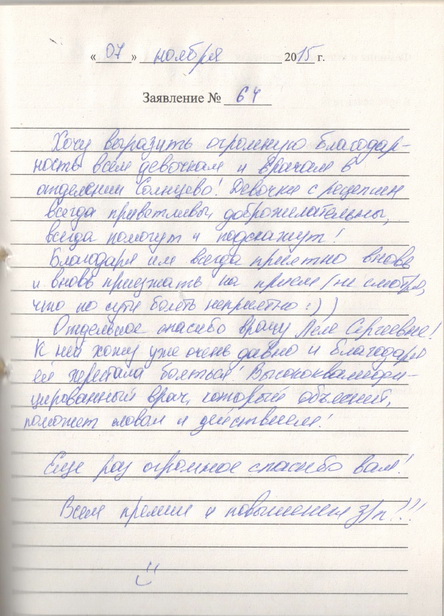 « 07 » ноября 2015 г.
Заявление № 64
Хочу выразить огромную благодар-
ность всем девочкам и врачам в
отделении Солнцево! Девочки с рецепшен
всегда приветливы, доброжелательны,
всегда помогут и подскажут!
Благодаря им всегда приятно вновь
и вновь приезжать на прием (не смотря,
что по сути болеть неприятно :))
Отдельное спасибо врачу Леле Сергеевне!
К ней хожу уже очень давно и благодаря
ей перестала бояться! Высококвалифи-
цированный врач, который объяснит,
поможет словом и действием!
Еще раз огромное спасибо вам!
Всем премии и повышения з/п!!!